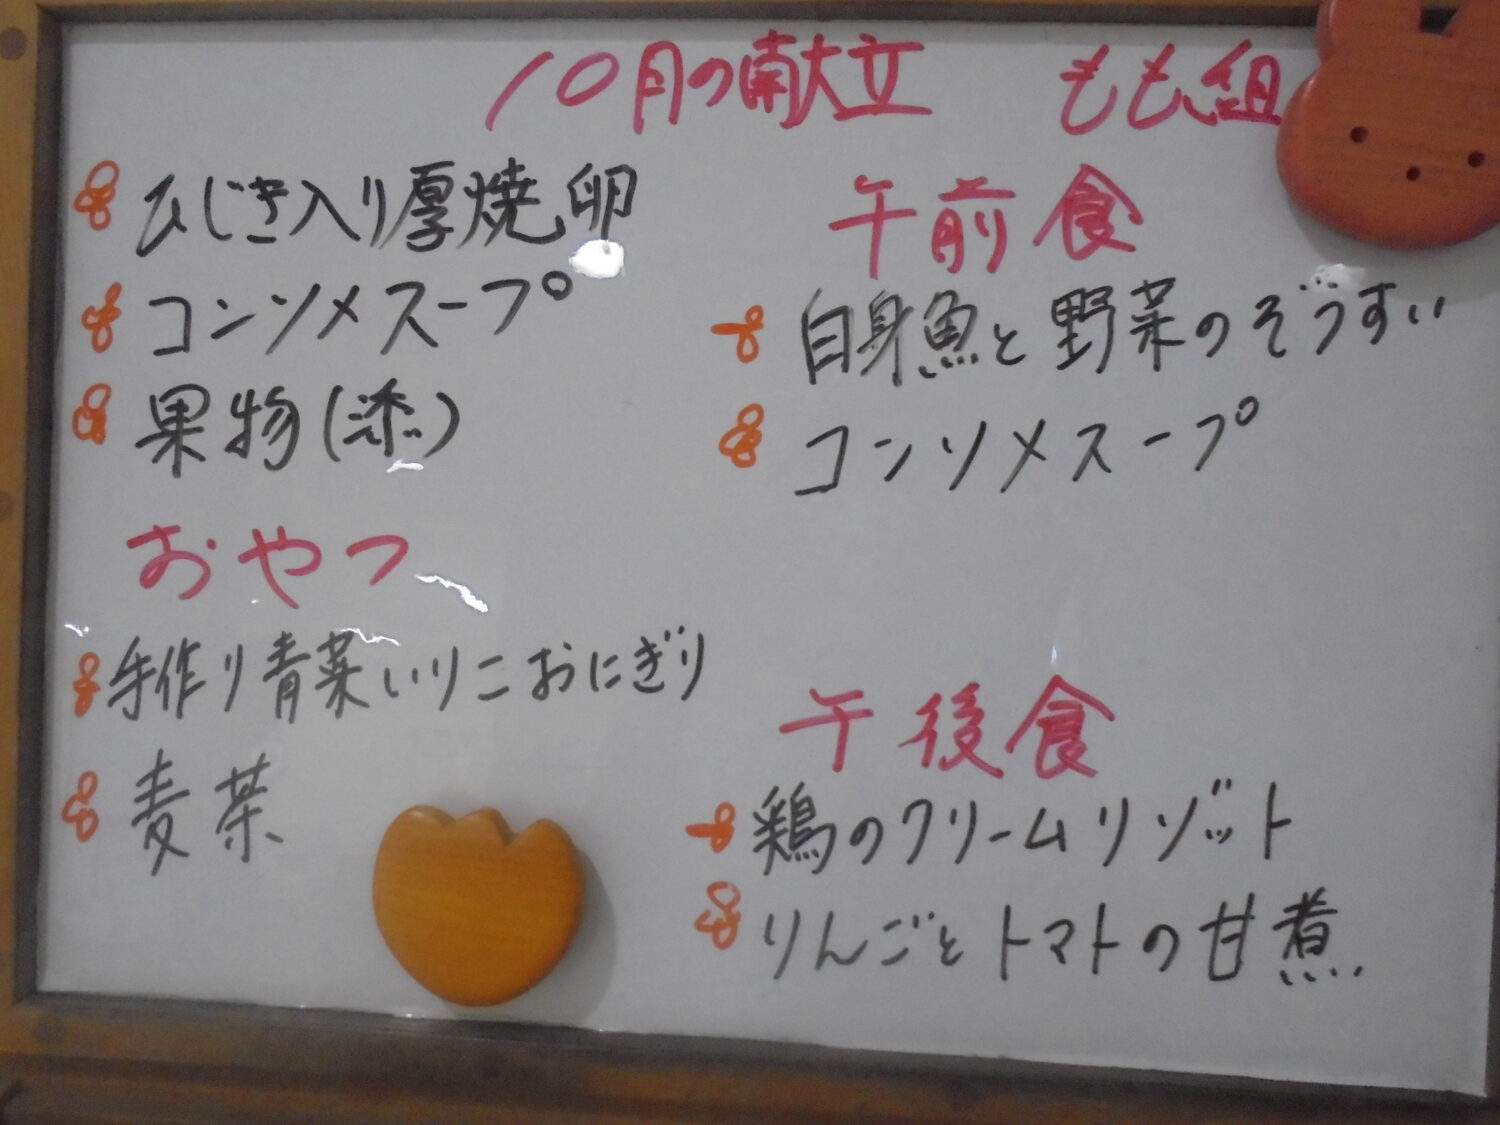 10月の献立 もも組
ひじき入り厚焼卵
コンソメスープ
果物(添)
おやつ
手作り青菜いりこおにぎり
麦茶
午前食
白身魚と野菜のぞうすい
コンソメスープ
午後食
鶏のクリームリゾット
りんごとトマトの甘煮